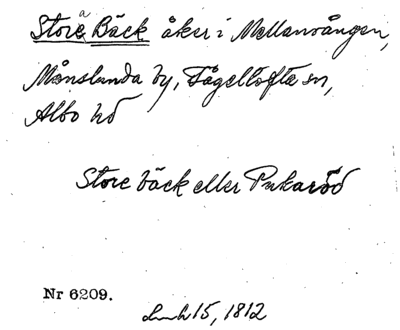 Store Bäck åker i Mellanvången,
Månslunda by, Fågeltofta sn,
Albo hd
Store bäck eller Pukaröd
Nr 6209.
Lmh 15, 1812